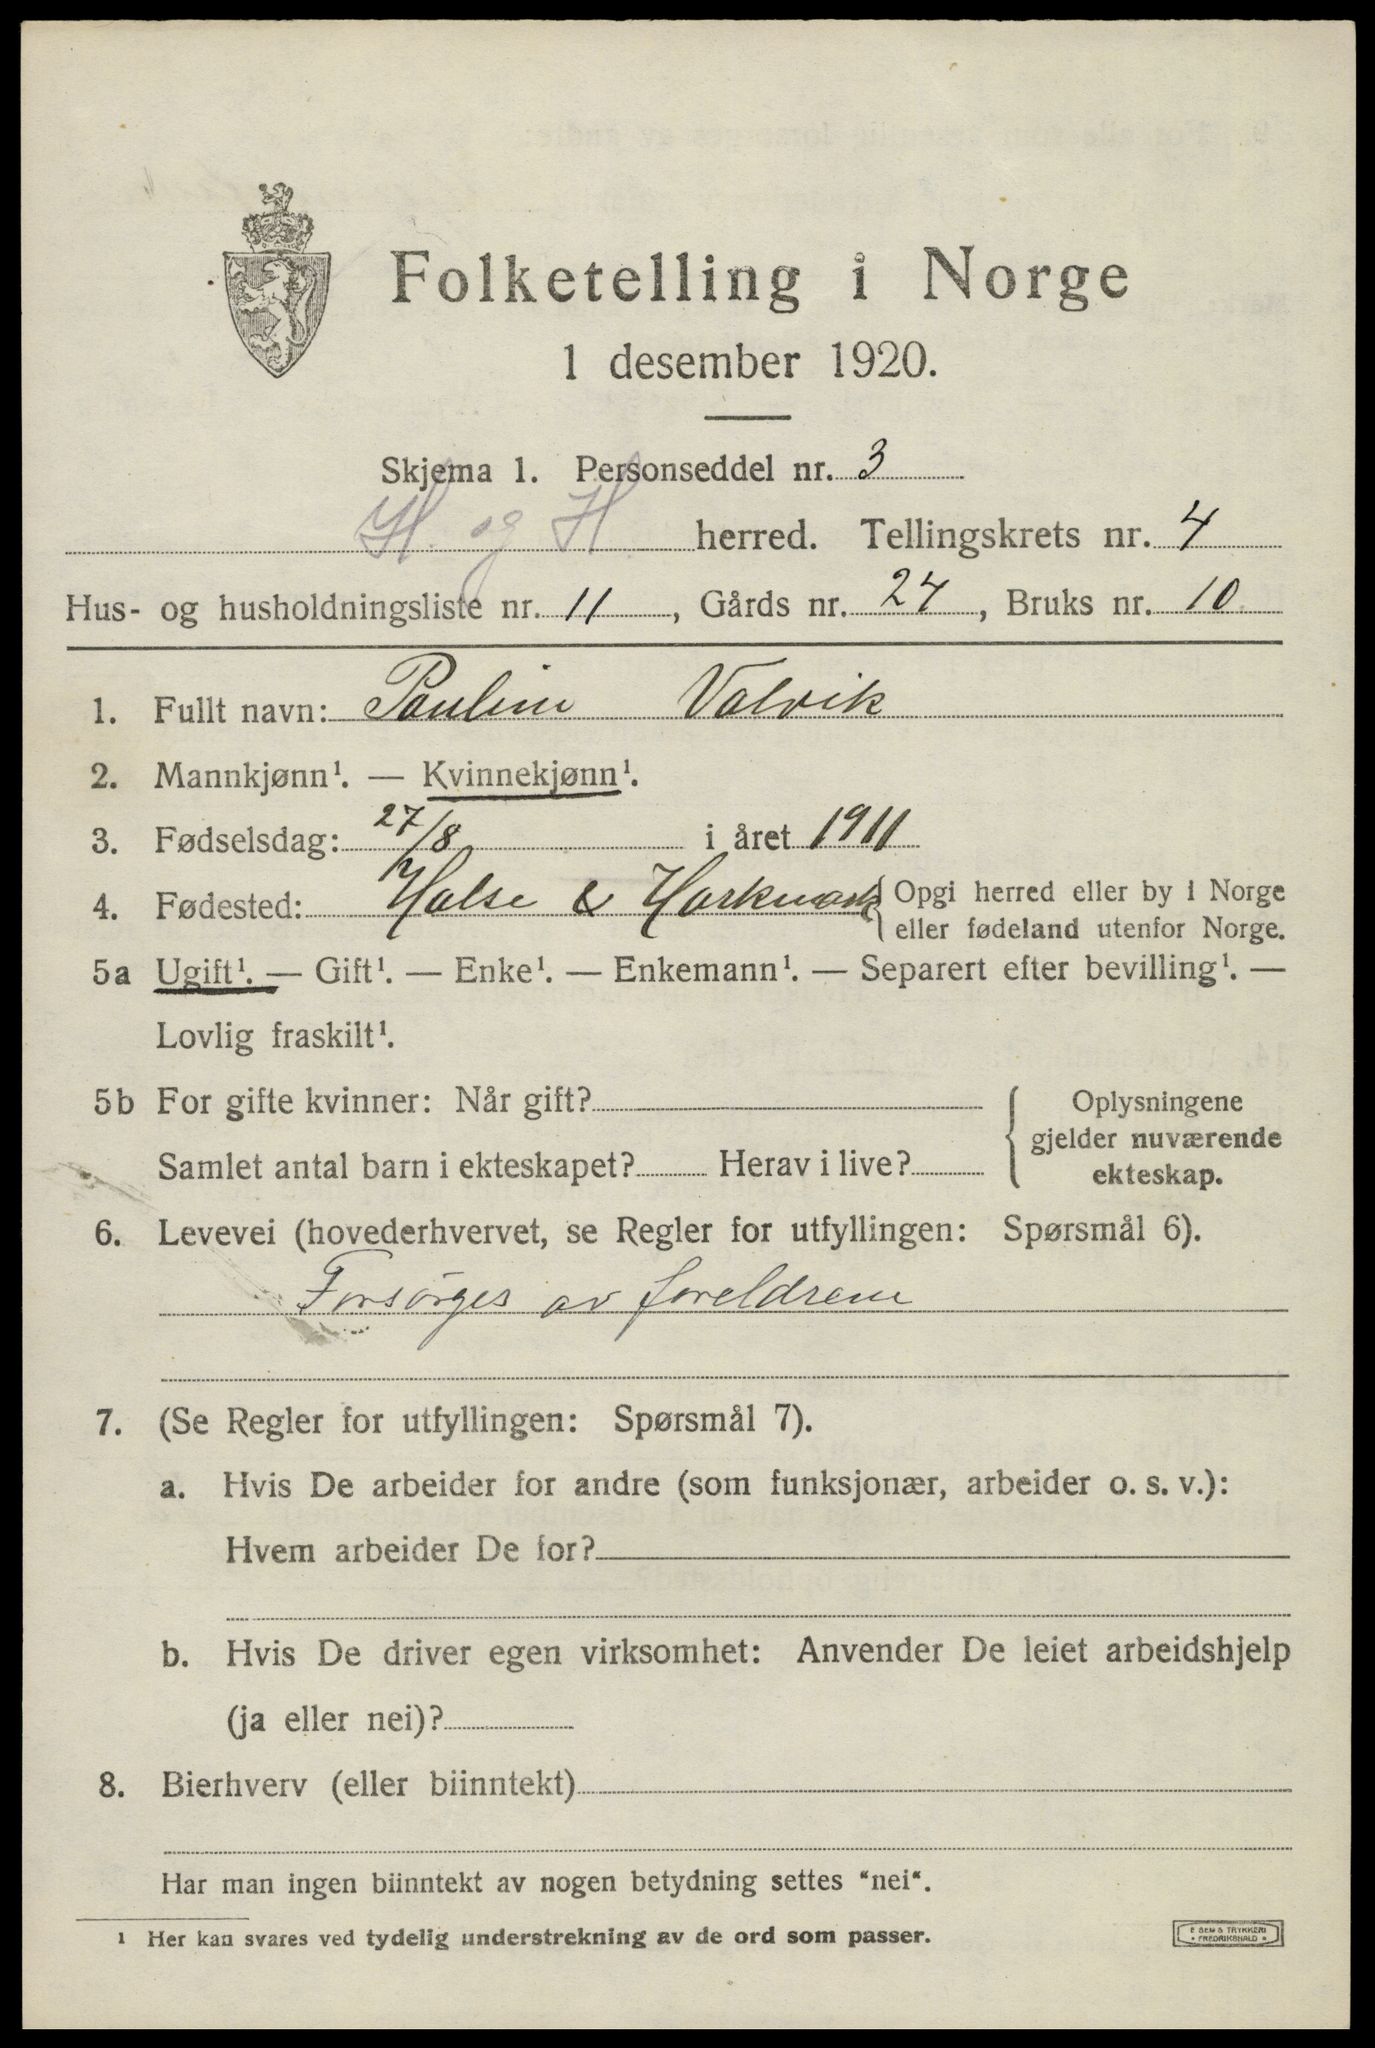 Folketelling i Norge
1 desember 1920.
Skjema 1. Personseddel nr. 3
H. og H. herred. Tellingskrets nr. 4
Hus- og husholdningsliste nr. 11, Gårds nr. 24, Bruks nr. 10
1. Fullt navn: Pauline Valvik
2. Mannkjønn¹. — Kvinnekjønn¹.
3. Fødselsdag: 27/8 i året 1911
4. Fødested: Halse & Harkmark { Opgi herred eller by i Norge
eller fødeland utenfor Norge.
5a Ugift¹. — Gift¹. — Enke¹. — Enkemann¹. — Separert efter bevilling¹. —
Lovlig fraskilt¹.
5b For gifte kvinner: Når gift?
Samlet antal barn i ekteskapet? Herav i live?
{ Oplysningene
gjelder nuværende
ekteskap.
6. Levevei (hovederhvervet, se Regler for utfyllingen: Spørsmål 6).
Forsørges av foreldrene
7. (Se Regler for utfyllingen: Spørsmål 7).
a. Hvis De arbeider for andre (som funksjonær, arbeider o. s. v.):
Hvem arbeider De for?
b. Hvis De driver egen virksomhet: Anvender De leiet arbeidshjelp
(ja eller nei)?
8. Bierhverv (eller biinntekt)
Har man ingen biinntekt av nogen betydning settes "nei".
1 Her kan svares ved tydelig understrekning av de ord som passer.
E SEMS TRYKKERI
• FREDRIKSHALD •